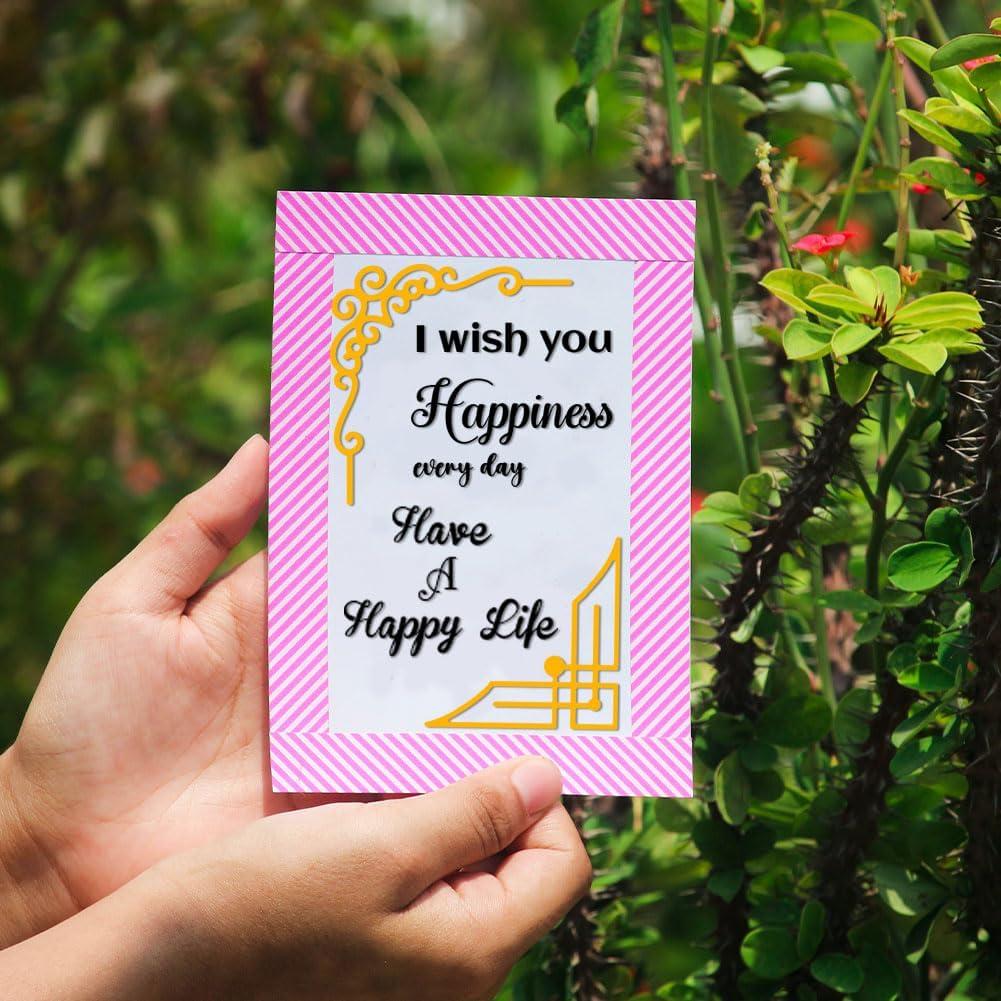 I wish you
Happiness
every day
Have
A
Happy Life